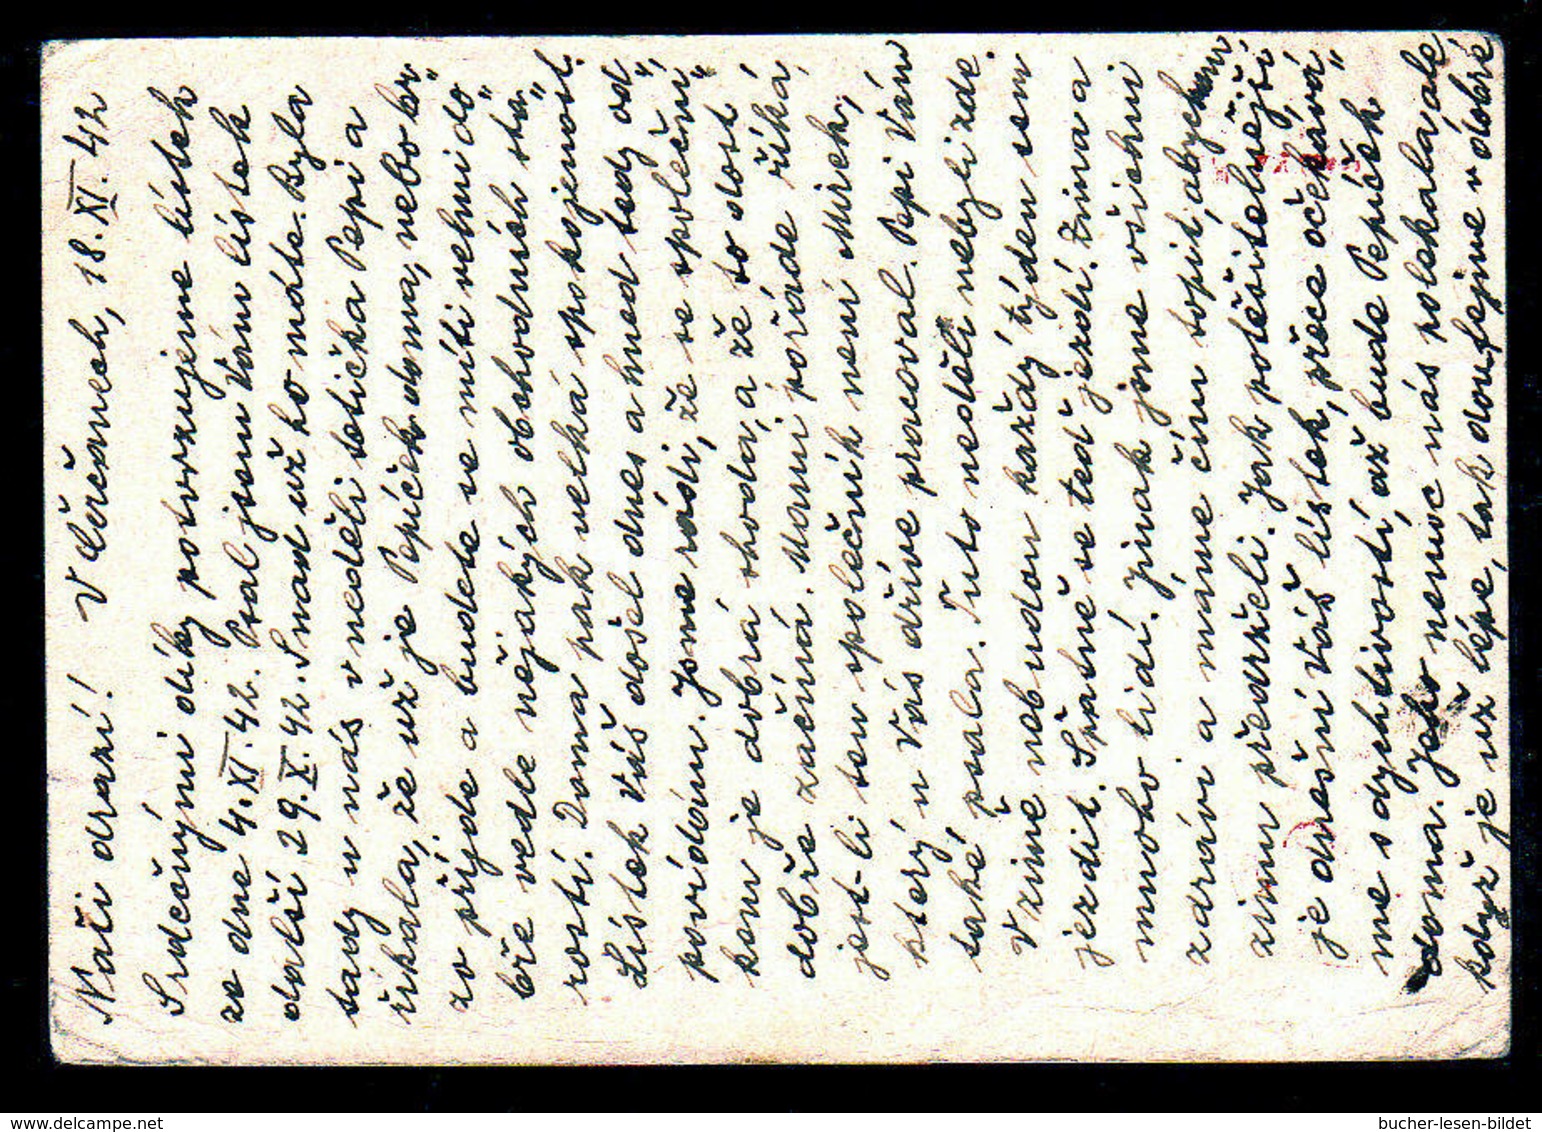 Naši drazí! V Čerčanech, 18.XI.42
Srdečnými díky potvrzujeme lístek
ze dne 4.XI.42. Psal jsem Vám lístek
další 29.X.42. Snad už ho máte. Byla
tady u nás v neděli tetička Pepi a
říkala, že už je Pepíček doma, nebo br„
zo přijde a budete se míti velmi do„
bře vedle nějakých obchodních sta„
rostí. Doma pak velká spokojenost.
Lístek Váš došel dnes a hned tedy od„
povídám. Jsme rádi, že se společní„
kem je dobrá shoda, a že to dost
dobře začíná. Mami pořáde říká,
jest-li ten společník není Mirek,
který u Vás dříve pracoval. Pepi Vám
také psala. Tuto neděli nebyli zde.
V zimě nebudou každý týden sem
jezdit. Špatně se teď jezdí. Zima a
mnoho lidí. Jinak jsme všichni
zdrávi a máme čím topit, abychom
zimu předrželi. Jak potěšitelnější
je dnešní Váš lístek, přece očekává„
me s dychtivostí, až bude Pepíček
doma. Jeho nemoc nás polekala ale
když je už lépe, tak doufejme v dobré
bucher-lesen-bildet